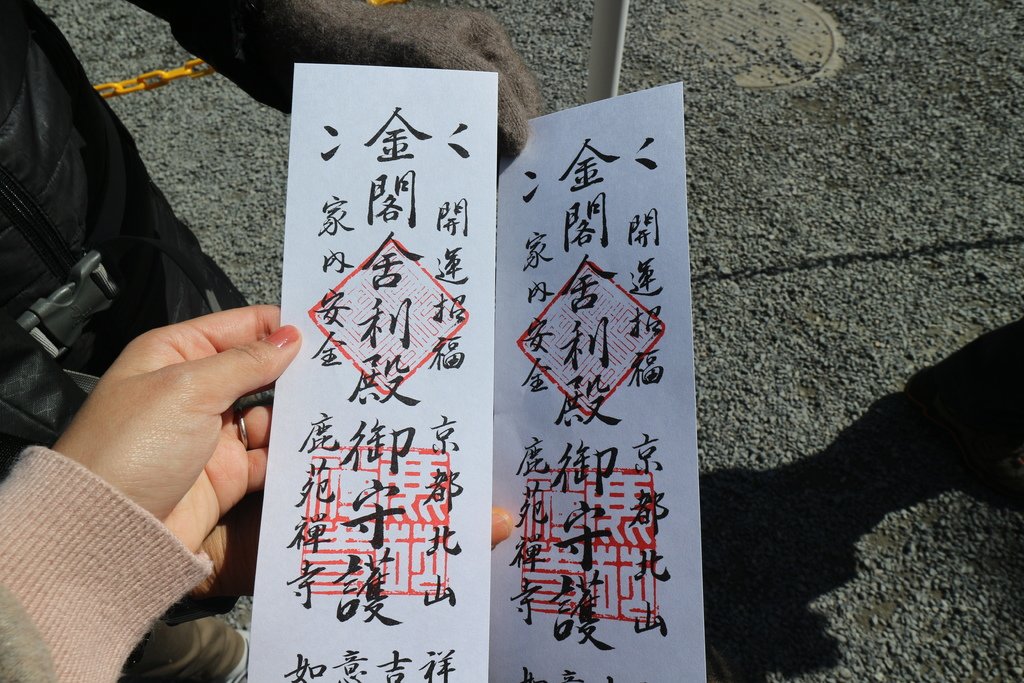 開運招福
金閣舎利殿御守護
家内安全
京都北山
鹿苑禪寺
如意吉祥
開運招福
金閣舎利殿御守護
家内安全
京都北山
鹿苑禪寺